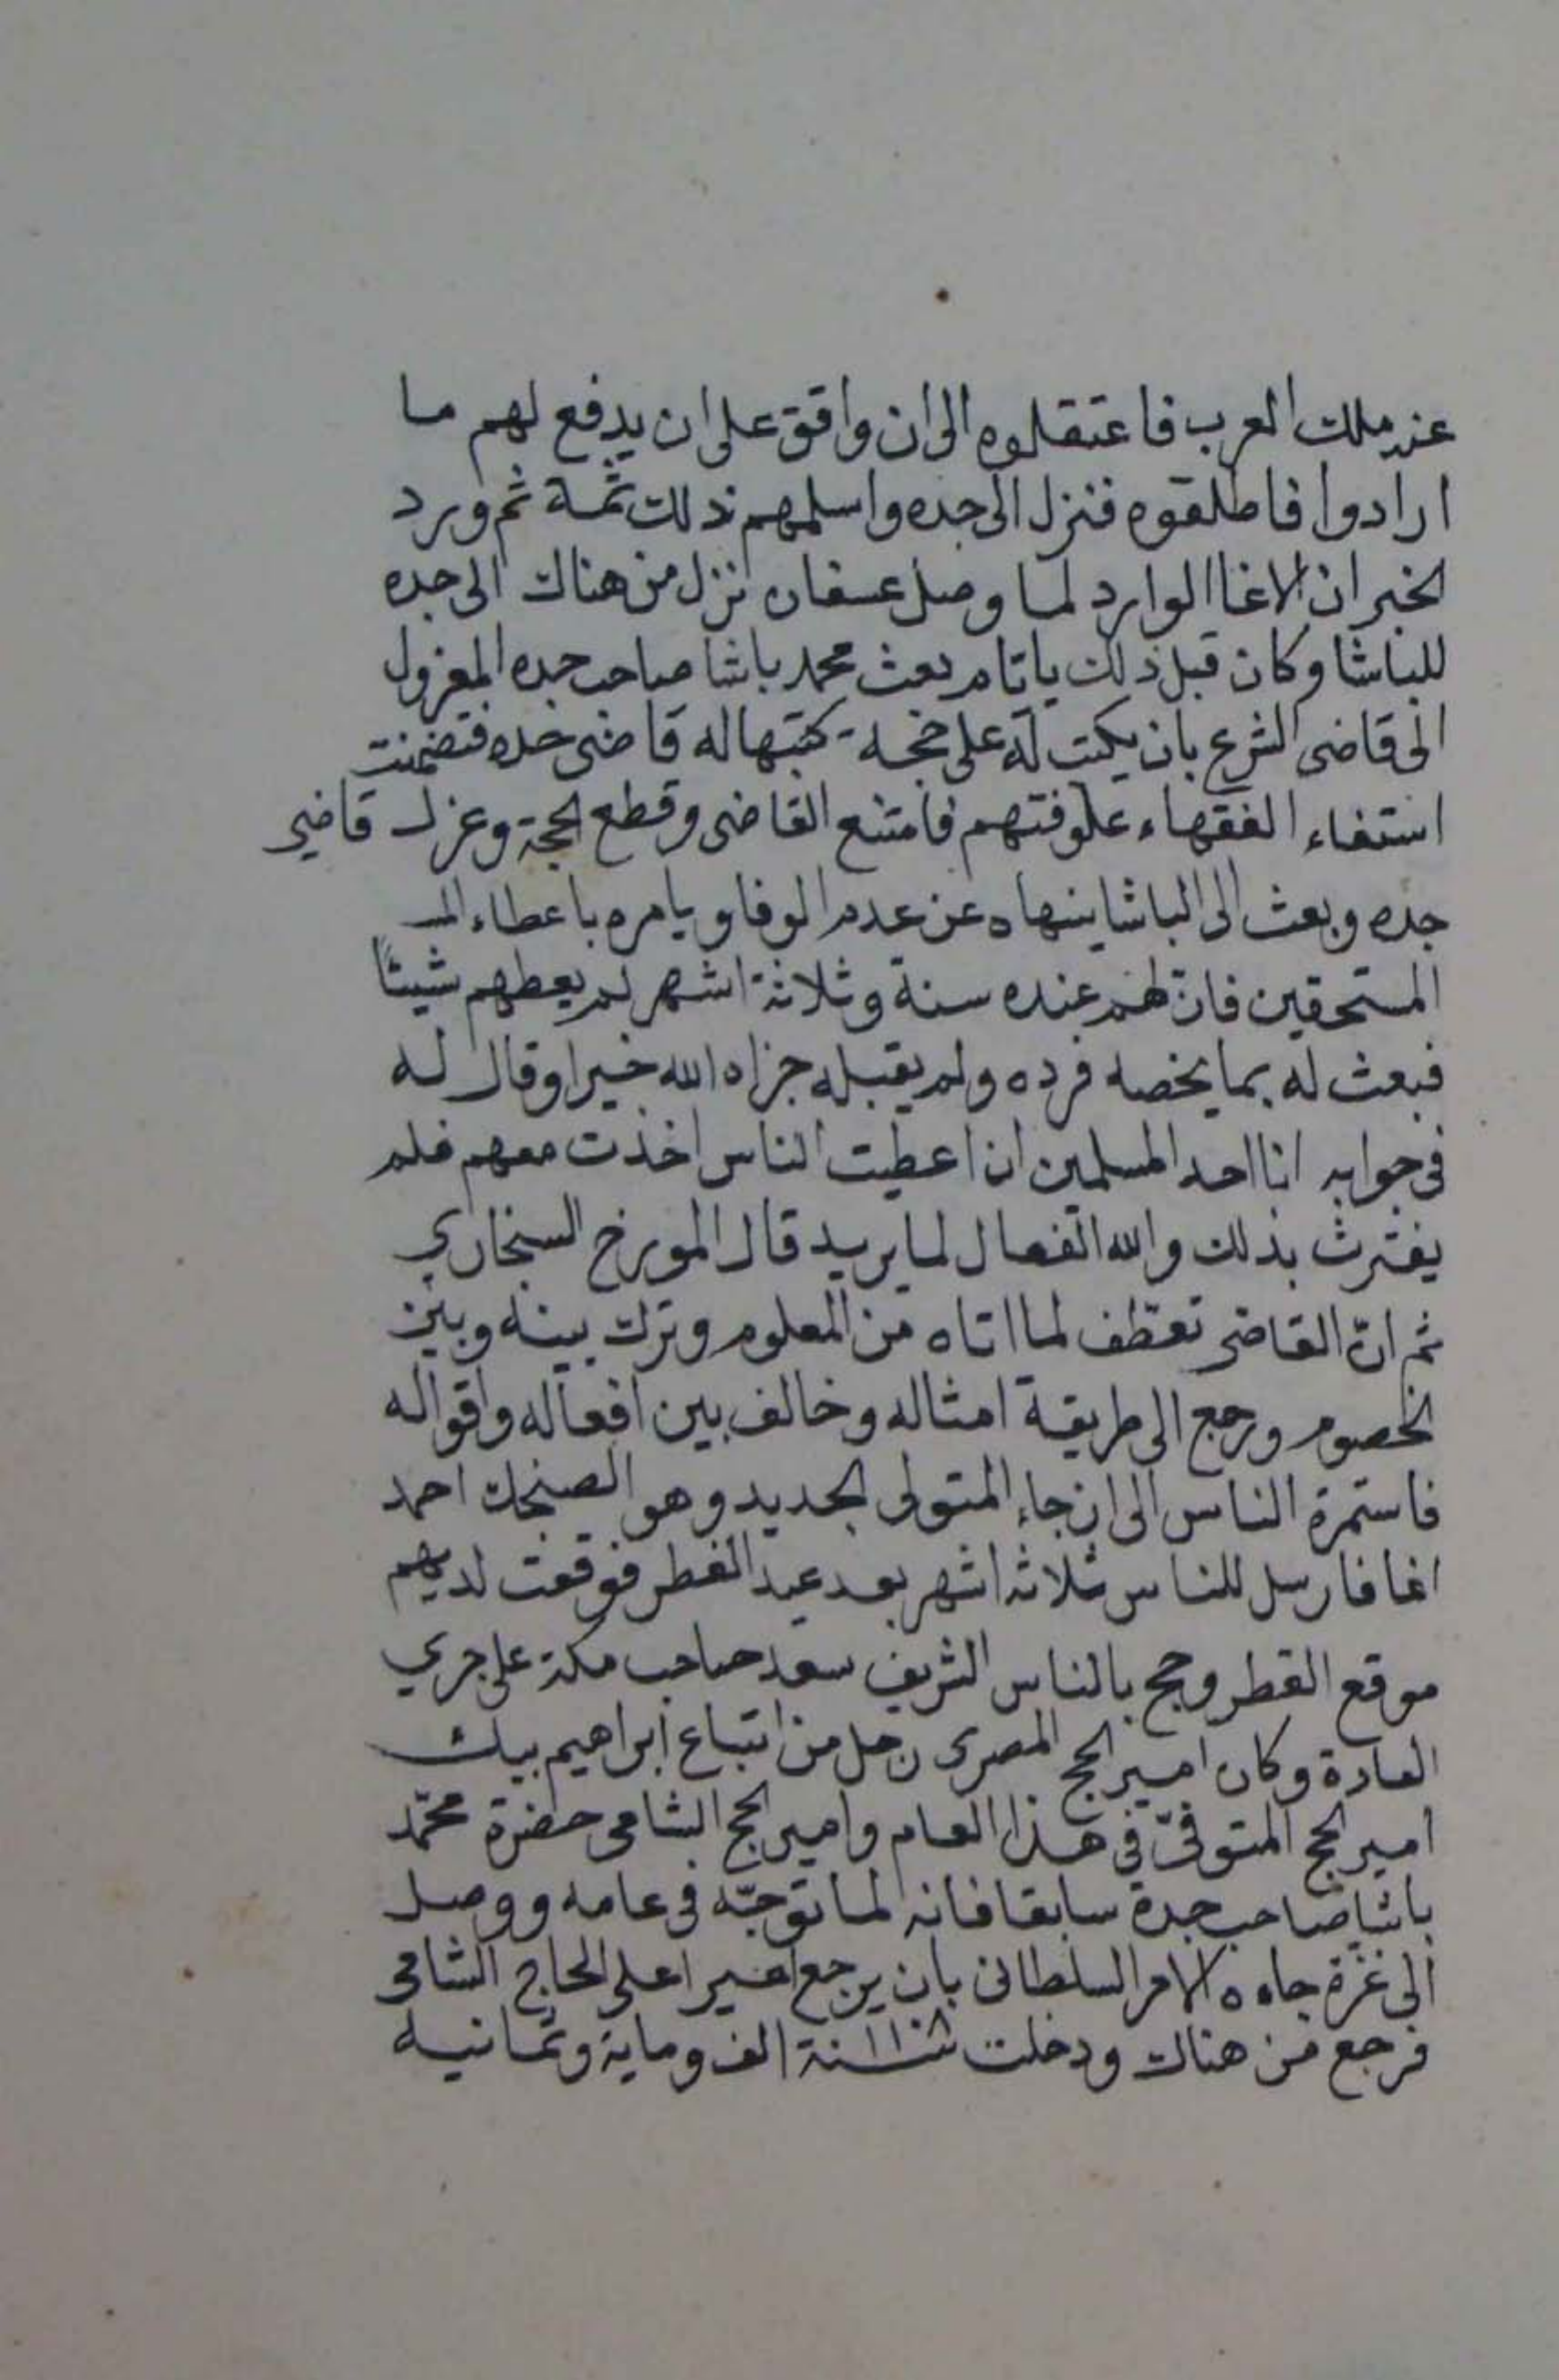 عند ملك العرب فاعتقلوه الى ان وافق على ان يدفع لهم ما
ارادوا فاطلقوه فنزل الى جده واسلمهم ذلك ثمة ثم ورد
الخبر ان الاغا الوارد لما وصل عسفان نزل من هناك الى جده
للباشا وكان قبل ذلك بايام بعث محمد باشا صاحب جده المعزول
الى قاضى الشرع بان يكتب له على حجة كتبها له قاضى جده فتضمنت
استفاء الفقهاء علوفتهم فامتنع القاضى وقطع الحجة وعزل قاضي
جده وبعث الى الباشا ينهاه عن عدم الوفا ويامره باعطاء المـ
المستحقين فان لهم عنده سنة وثلاثة اشهر لم يعطهم شيئًا
فبعث له بما يخصه فرده ولم يقبله جزاه الله خيرا وقال له
فى جوابه انا احد المسلمين ان اعطيت الناس اخذت معهم فلم
يفترث بذلك والله الفعال لما يريد قال المورخ السنجاري
ثم انّ القاضى تعطف لما اتاه من المعلوم وترك بينه وبين
الخصوم ورجع الى طريقة امثاله وخالف بين افعاله واقواله
فاستمرة الناس الى ان جاء المتولى الجديد وهو الصنجك احمد
اغا فارسل للناس ثلاثه اشهر بعد عيد الفطر فوقعت لديهم
موقع القطر وحج بالناس الشريف سعد صاحب مكة على جري
العادة وكان امير الحج المصرى رجل من اتباع ابراهيم بيك
امير الحج المتوفىّ في هذا العام وامير الحج الشامى حضرة محمّد
باشا صاحب جدة سابقا فانه لما توجّه فى عامه ووصل
الى غزة جاءه الامر السلطانى بان يرجع اميرا على الحاج الشامى
فرجع من هناك ودخلت سنة الف وماية وثمانية